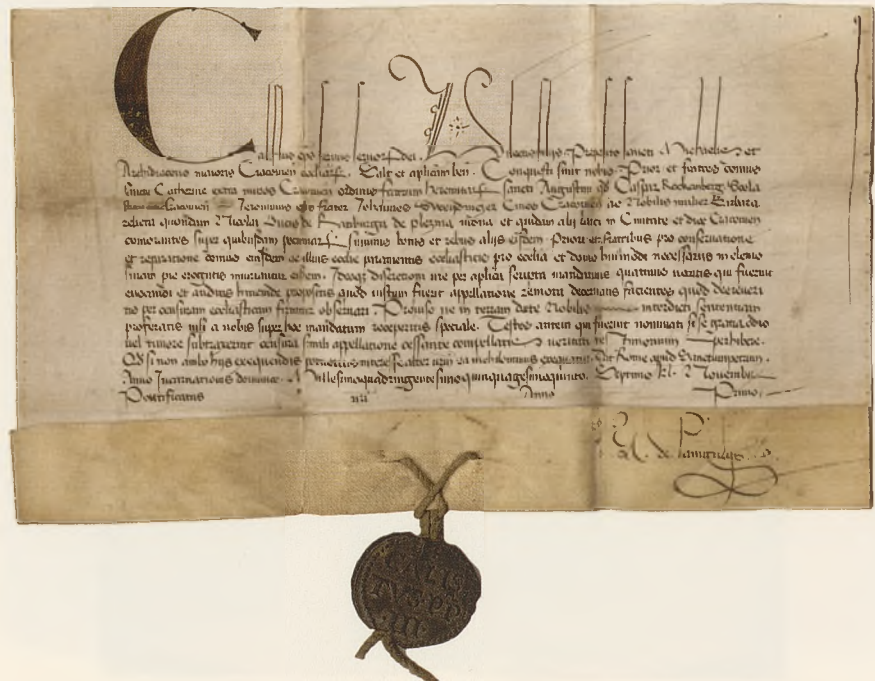 Calistus eps servus servor dei. Dilectis filijs Preposito sancti Michaelis et
Archidiacono maioris Cracovien ecclesiar. Salt et aplicam ben. Conquesti sunt nobis Prior et fratres domus
sancte Catherine extra muros Cracovien ordinis fratrum heremitar sancti Augustini qd Caspar Rockenberg
Cracovien Jeronimus frater Johannes Cives Cracovien ac Nobilis mulier Barbara
relicta quondam Nicolai Ducis de et quidam alij laici in Civitate et dioc Cracovien
comorantes super quibusdam pecuniar sumis bonis et rebus alijs eisdem Priori et fratribus pro conservatione
et reparatione domus eiusdem ac illius ecclie paramentis ecclesiasticis pro ecclia et domo huiusmodi necessarijs in elemo
sinam pie erogatis iniuriantur eisdem. Ideoqz discretioni vre per aplica scripta mandamus quatinus vocatis qui fuerint
evocandi et auditis hincinde propositis quod iustum fuerit appellatione remota decernatis facientes quod decreveri
tis per censuram ecclesiasticam firmiter observari. Proviso ne in terram dicte Nobilis interdicti sententiam
proferatis nisi a nobis super hoc mandatum receperitis speciale. Testes autem qui fuerint nominati si se gratia odio
vel timore subtraxerint censura simili appellatione cessante compellatis veritati testimonium perhibere.
Qd si non ambo hijs exequendis potueritis interesse alter vrm ea nichilominus exequatur. Dat Rome apud Sanctumpetrum.
Anno Incarnationis dominice Millesimoquadringentesimoquinquagesimoquinto. Septimo kl. Novembr
Pontificatus nri Anno Primo.
CALIS
TVS PP
III